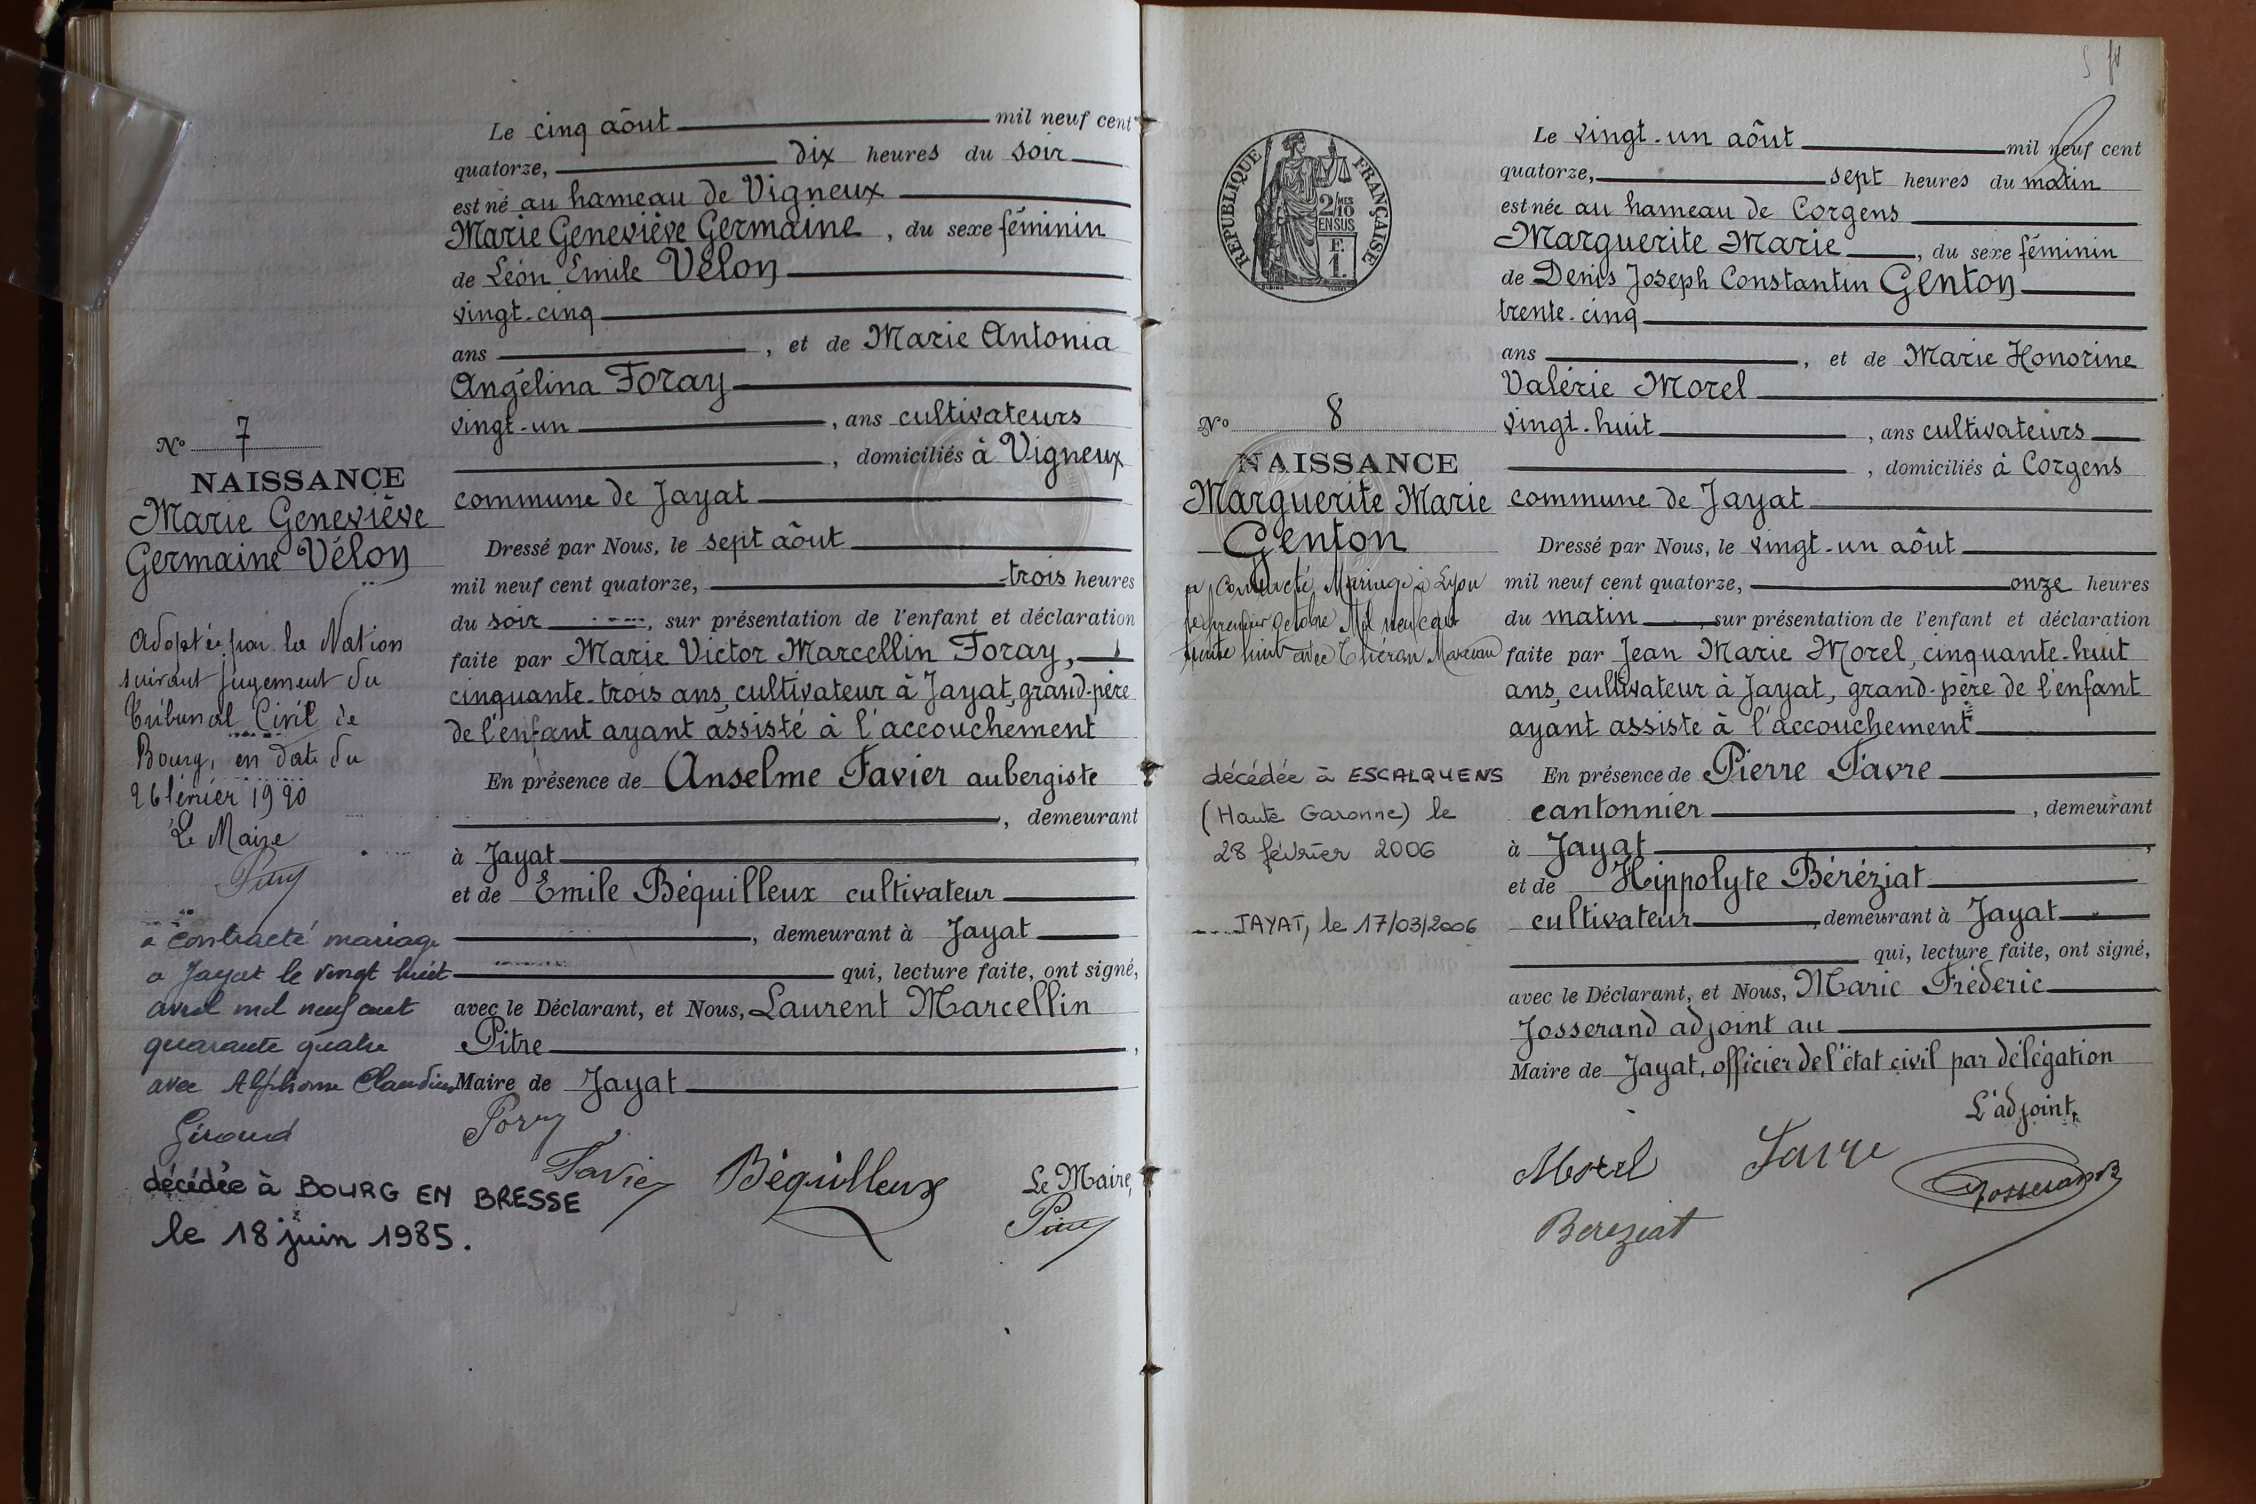 Le cinq aôut mil neuf cent
quatorze, dix heures du soir
est né au hameau de Vigneux
Marie Geneviève Germaine, du sexe féminin
de Léon Emile Vélon
vingt-cinq
ans, et de Marie Antonia
Angélina Foray
vingt-un, ans cultivateurs
, domiciliés à Vigneux
commune de Jayat
Dressé par Nous, le sept aôut
mil neuf cent quatorze, trois heures
du soir, sur présentation de l'enfant et déclaration
faite par Marie Victor Marcellin Foray,
cinquante-trois ans, cultivateur à Jayat, grand-père
de l'enfant ayant assisté à l'accouchement
En présence de Anselme Favier aubergiste
, demeurant
à Jayat
et de Emile Béquilleux cultivateur
, demeurant à Jayat
qui, lecture faite, ont signé,
avec le Déclarant, et Nous, Laurent Marcellin
Pitre,
Maire de Jayat
Foray
Favier
Béquilleux
Le Maire,
Pitre
No 7
NAISSANCE
Marie Geneviève
Germaine Vélon
Adoptée par la Nation
suivant jugement du
Tribunal Civil de
Bourg, en date du
26 février 1920
Le Maire
Pitre
a contracté mariage
a Jayat le vingt huit
avril mil neuf cent
quarante quatre
avec Alphonse Claudius
Giroud
décédée à BOURG EN BRESSE
le 18 juin 1985.
RÉPUBLIQUE FRANÇAISE
2/10 MES
EN SUS
F.
1.
Le vingt-un aôut mil neuf cent
quatorze, sept heures du matin
est née au hameau de Corgens
Marguerite Marie, du sexe féminin
de Denis Joseph Constantin Genton
trente-cinq
ans, et de Marie Honorine
Valérie Morel
vingt-huit, ans cultivateurs
, domiciliés à Corgens
commune de Jayat
Dressé par Nous, le vingt-un aôut
mil neuf cent quatorze, onze heures
du matin, sur présentation de l'enfant et déclaration
faite par Jean Marie Morel, cinquante-huit
ans, cultivateur à Jayat, grand-père de l'enfant
ayant assiste à l'accouchement
En présence de Pierre Favre
cantonnier, demeurant
à Jayat,
et de Hippolyte Béréziat
cultivateur, demeurant à Jayat
qui, lecture faite, ont signé,
avec le Déclarant, et Nous, Marie Fréderic
Josserand adjoint au
Maire de Jayat, officier de l'état civil par délégation
L'adjoint,
Morel
Favre
Josserand
Bereziat
No 8
NAISSANCE
Marguerite Marie
Genton
a contracté Mariage à Lyon
le premier octobre Mil neuf cent
trente huit avec Marceau
décédée à ESCALQUENS
(Haute Garonne) le
28 février 2006
JAYAT, le 17/03/2006